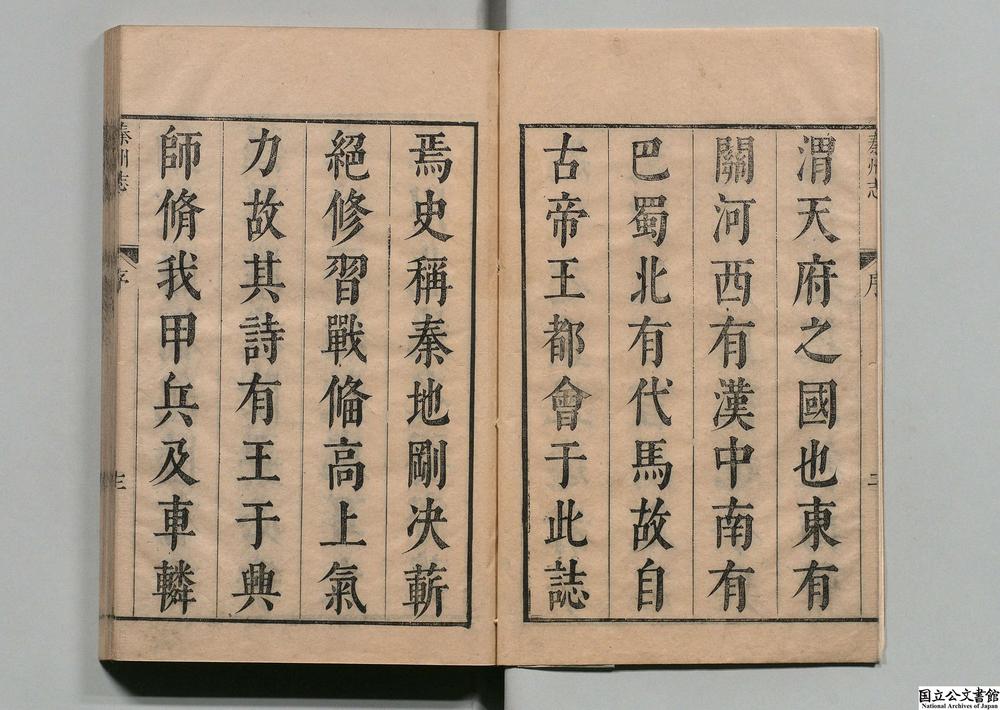 秦州志
序
三
渭天府之國也東有
關河西有漢中南有
巴蜀北有代馬故自
古帝王都會于此誌
焉史稱秦地剛决蕲
絕修習戰俻高上氣
力故其詩有王于興
師脩我甲兵及車轔
秦州志
序
国立公文書館
National Archives of Japan